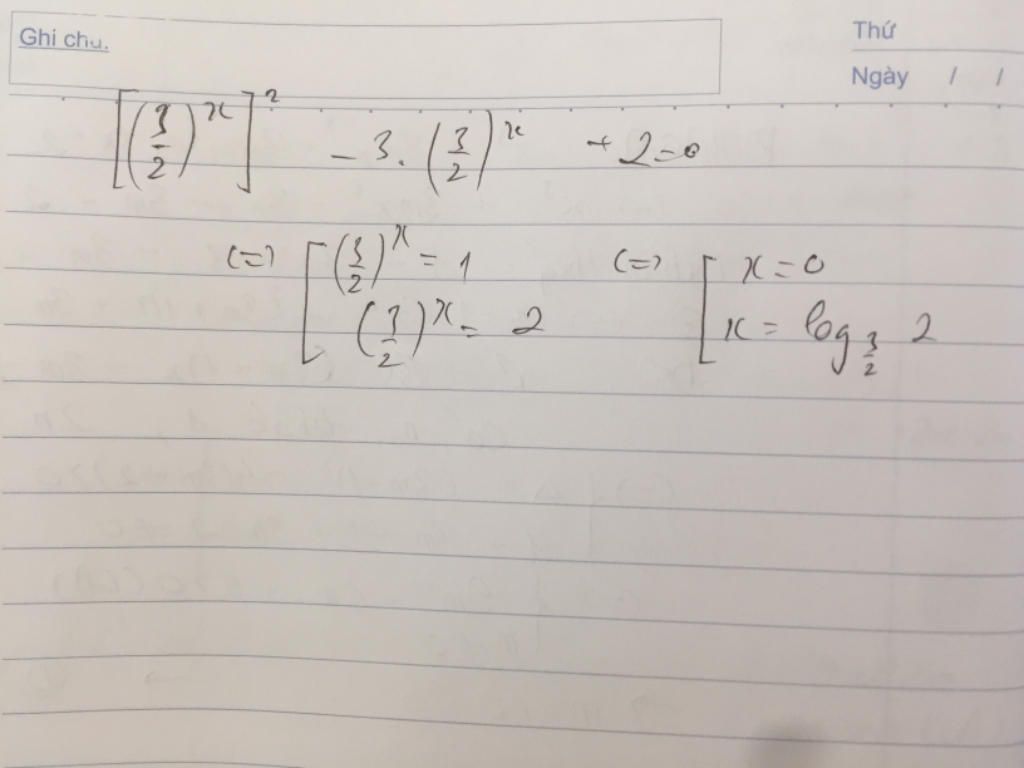 Ghi chú.
Thứ
Ngày / /
[(3/2)^x]^2 - 3. (3/2)^x + 2 = 0
(=) [ (3/2)^x = 1 (=) [ x = 0
(3/2)^x = 2 x = log_{3/2} 2